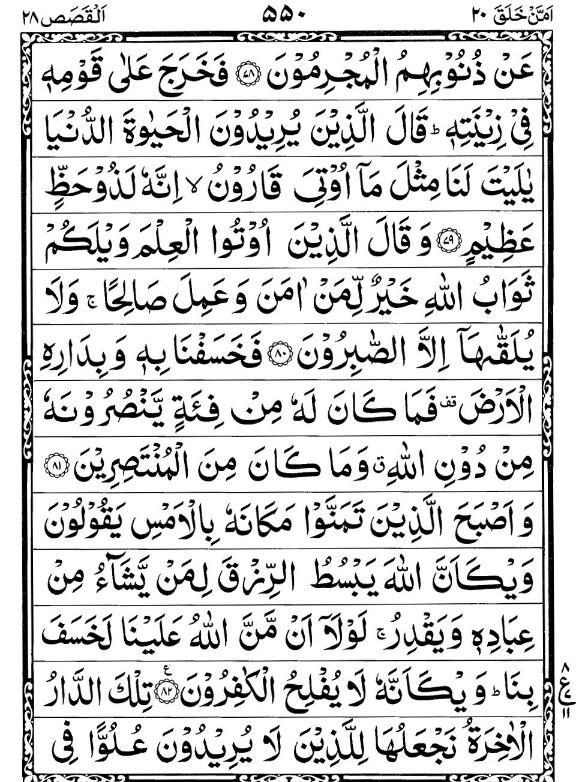 اَمَّنْ خَلَقَ ٢٠ ۵۵٠ اَلْقَصَص ٢٨
عَنْ ذُنُوْبِهِمُ الْمُجْرِمُوْنَ ﴿۷۸﴾ فَخَرَجَ عَلٰى قَوْمِهٖ
فِیْ زِیْنَتِهٖ ؕ قَالَ الَّذِیْنَ یُرِیْدُوْنَ الْحَیٰوةَ الدُّنْیَا
یٰلَیْتَ لَنَا مِثْلَ مَاۤ اُوْتِیَ قَارُوْنُ ۙ اِنَّهٗ لَذُوْ حَظٍّ
عَظِیْمٍ ﴿۷۹﴾ وَ قَالَ الَّذِیْنَ اُوْتُوا الْعِلْمَ وَیْلَكُمْ
ثَوَابُ اللّٰهِ خَیْرٌ لِّمَنْ اٰمَنَ وَ عَمِلَ صَالِحًا ۚ وَ لَا
یُلَقّٰىهَاۤ اِلَّا الصّٰبِرُوْنَ ﴿۸۰﴾ فَخَسَفْنَا بِهٖ وَ بِدَارِهِ
الْاَرْضَ قف فَمَا كَانَ لَهٗ مِنْ فِئَةٍ یَّنْصُرُوْنَهٗ
مِنْ دُوْنِ اللّٰهِ ق وَ مَا كَانَ مِنَ الْمُنْتَصِرِیْنَ ﴿۸۱﴾
وَ اَصْبَحَ الَّذِیْنَ تَمَنَّوْا مَكَانَهٗ بِالْاَمْسِ یَقُوْلُوْنَ
وَیْكَاَنَّ اللّٰهَ یَبْسُطُ الرِّزْقَ لِمَنْ یَّشَآءُ مِنْ
عِبَادِهٖ وَ یَقْدِرُ ۚ لَوْلَاۤ اَنْ مَّنَّ اللّٰهُ عَلَیْنَا لَخَسَفَ
بِنَا ؕ وَیْكَاَنَّهٗ لَا یُفْلِحُ الْكٰفِرُوْنَ ﴿۸۲﴾ ع تِلْكَ الدَّارُ
۸ ع ۱۱
الْاٰخِرَةُ نَجْعَلُهَا لِلَّذِیْنَ لَا یُرِیْدُوْنَ عُلُوًّا فِی